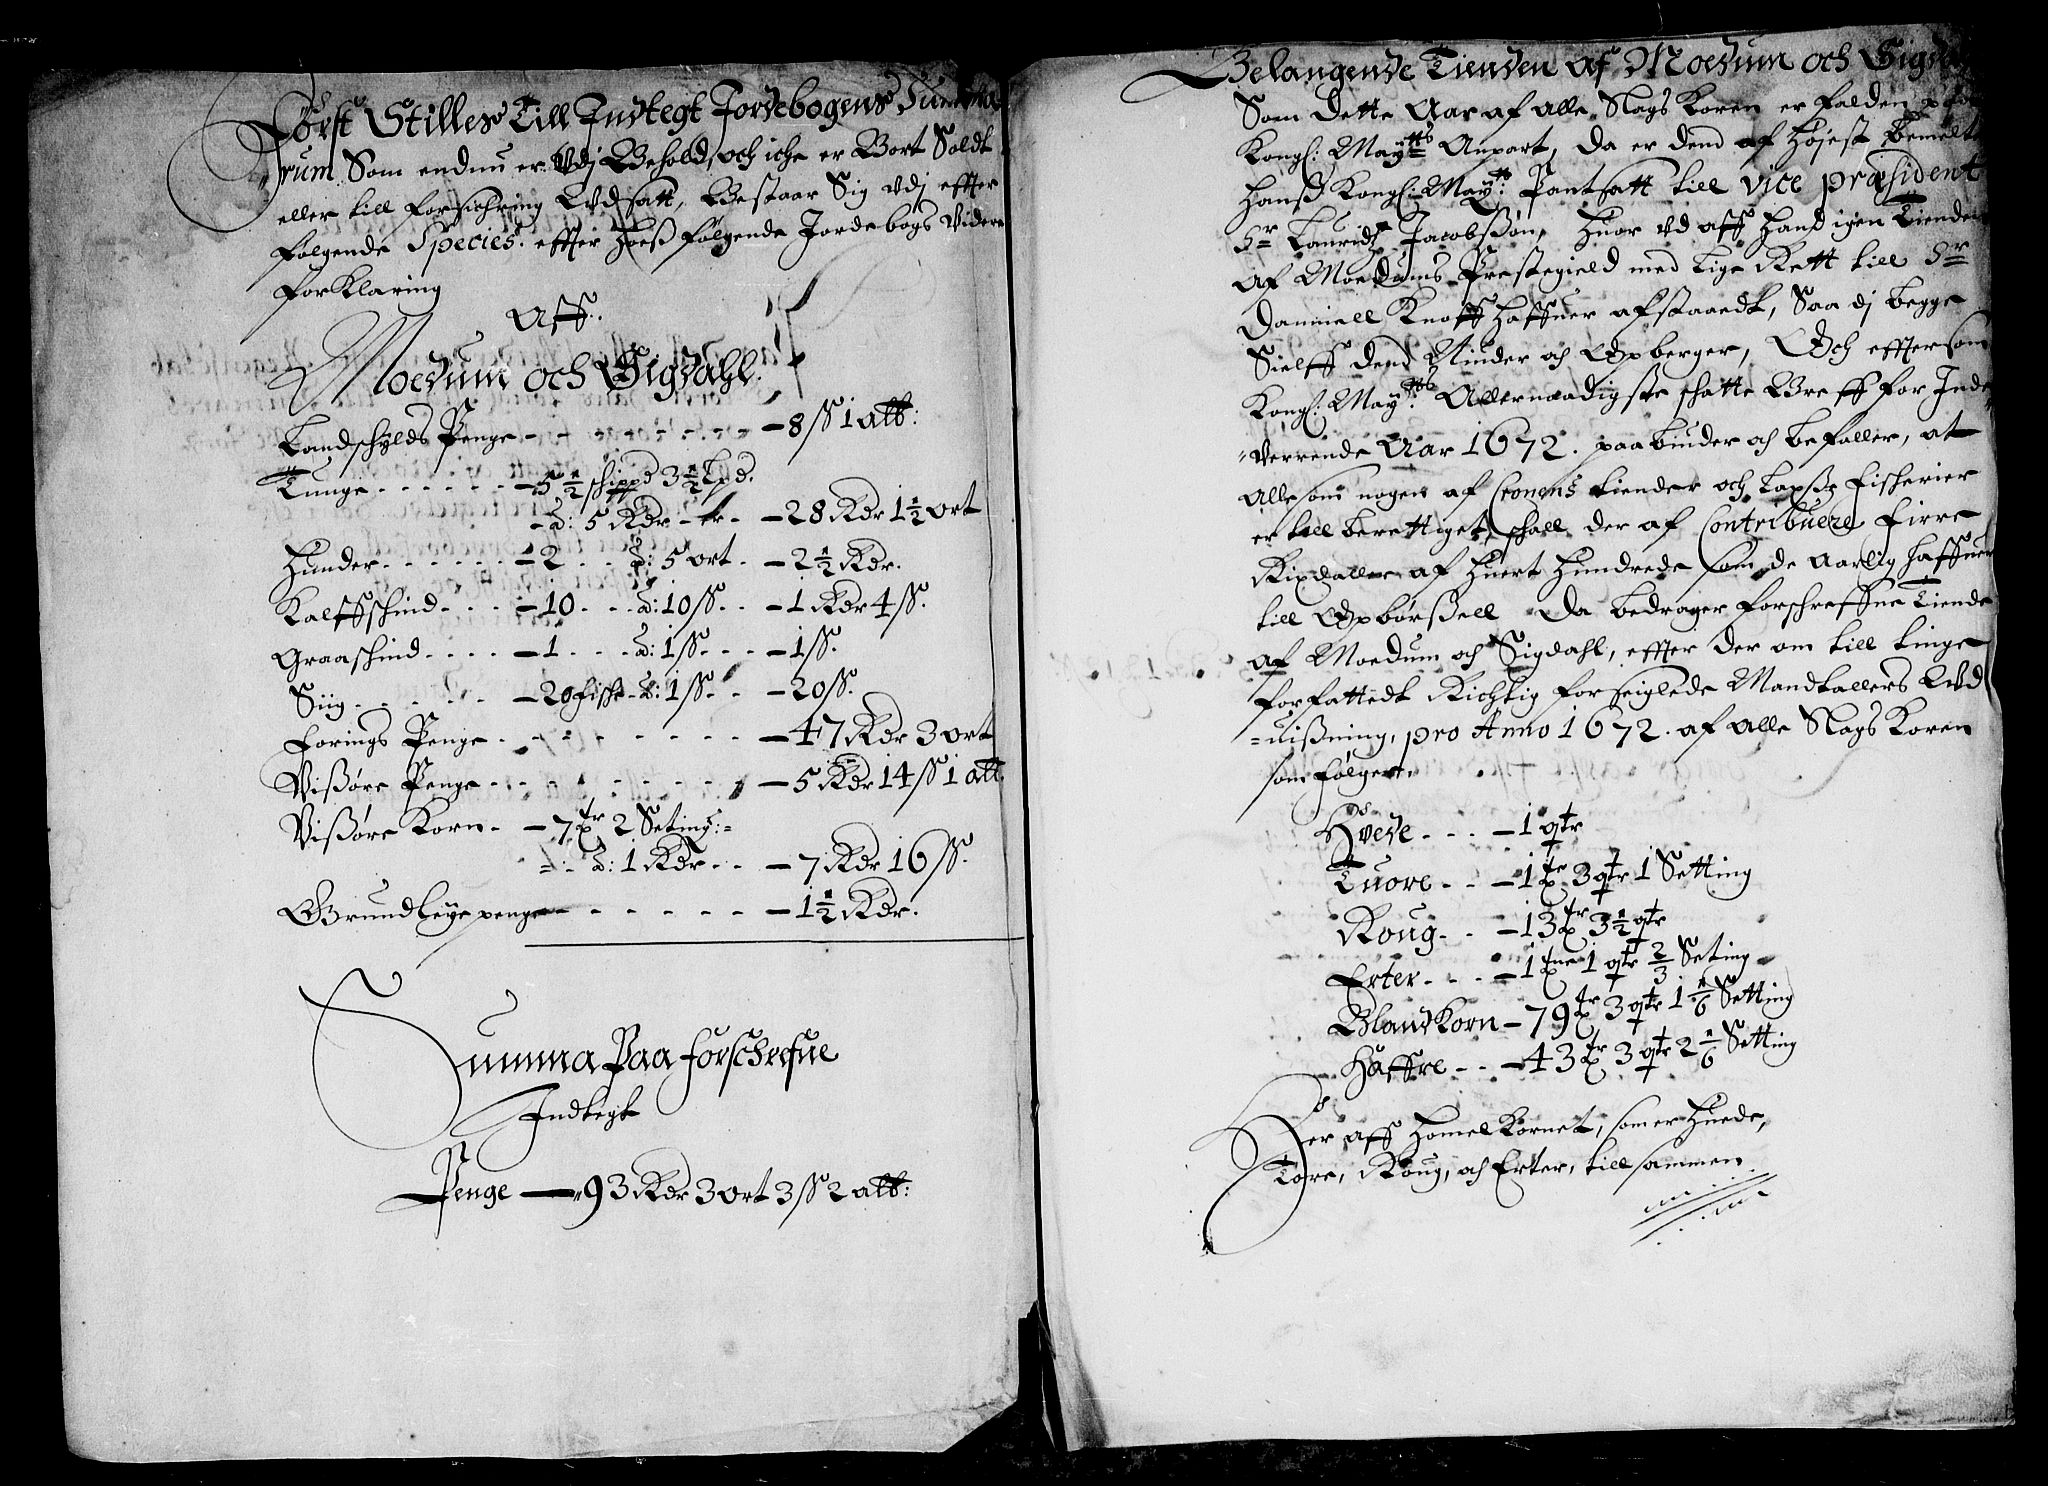 Först Stilles Till Indtegt Jordebogens Summa
rum Som endnu er Vdj Behold, och iche er Bort Soldt
eller till forsichring Vdsatt, Bestaar Sig Vdj effter
følgende Species. effter hoes følgende Jordebogs Videre
forKlaring
Aff.
Moedum och Sigdahl.
Landschylds Penge - - - - - - 8 ß 1 alb:
Tunge - - - - - 5 1/2 schippd 3 1/2 Lpd.
- a: 5 Rdr - er - 28 Rdr 1 1/2 ort
Hunder - - - - - 2 - - a: 5 ort - 2 1/2 Rdr.
Kalffschind - - - 10 - - a: 10 ß - - 1 Rdr 4 ß.
Graaschind - - - - 1 - - - a: 1 ß - - - 1 ß.
Siig - - - - - 20 fische - a: 1 ß - - 20 ß.
Forings Penge - - - - - - - - 47 Rdr 3 ort
Vißøre Penge - - - - - - - - 5 Rdr 14 ß 1 alb
Vißøre Korn - - 7 tr 2 Seting:
- - a: 1 Rdr - - 7 Rdr 16 ß.
Grundleye penge - - - - - - 1 1/2 Rdr.
Summa Paa forschrefne
Indtegt
Penge — 93 Rdr 3 ort 3 ß 2 alb:
Belangende Tienden af Moedum och Sigda
Som dette Aar af alle Slags Koren er falden paa
Kongl: Maytts Anpart, da er dend af høiest bemelte
Hanß Kongl: Maytt: Pantsatt till vice præsident
Hr Lauridz Jacobßøn, huor vd aff hand igen Tienden
af Moedums Prestegield med lige Rett till Hr
Danniell Knoff haffuer afstaaedt, Saa dj begge
Sielff dend Niuder och Opberger, Och efftersom
Kongl: Maytts: Allernaadigste schatte Breff for Inde
-verrende Aar 1672. paabiuder och befaller, at
alle som nogen af Cronens tiender och Laxße fischerier
er till berettiget, schall der af Contribuere Firre
Rixdaller af huert hundrede som de aarlig haffuer
till Opbørßell Da bedrager forschreffne Tiende
af Moedum och Sigdahl, effter der om till tinge
forfattedt Richtig forseiglede Mandtallers Vd
-uißning, pro Anno 1672. af alle Slags Koren
som følger.
Hvede - - - 1 qtr
Tuore - - - 1 tr 3 qtr 1 Setting
Roug - - - 13 tr 3 1/2 qtr
Erter - - - 1 tne 1 qtr 2/3 Seting
BlandKorn - 79 tr 3 qtr 1 1/6 Setting
Haffre - - - 43 tr 3 qtr 2 1/6 Setting
Der aff Homel Kornet, som er Huede,
Tore, Roug, och Erter, till sammen